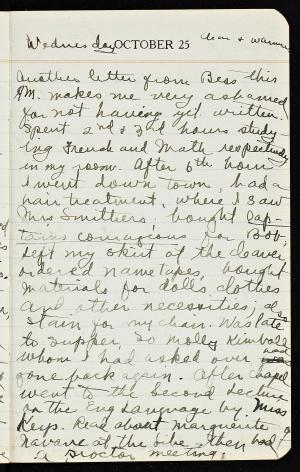 Wednesday OCTOBER 25 clear & warmer
Another letter from Bess this
A.M. makes me very ashamed
for not having yet written.
Spent 2nd & 3rd hours study-
ing French and Math respectively
in my room. After 6th hour
I went down town, had a
hair treatment, where I saw
Mrs Smithers, bought Cap-
tains Courageous for Bob,
left my skirt at the cleaner,
ordered name tapes, bought
materials for dolls clothes
and other necessities; also
stain for my chair. Was late
to supper, so Molly Kimball
whom I had asked over had
gone back again. After chapel
went to the second lecture
on the Eng Language by Miss
Keys. Read about Marguerite of
Navarre at the Libe - then had
a Proctor meeting.